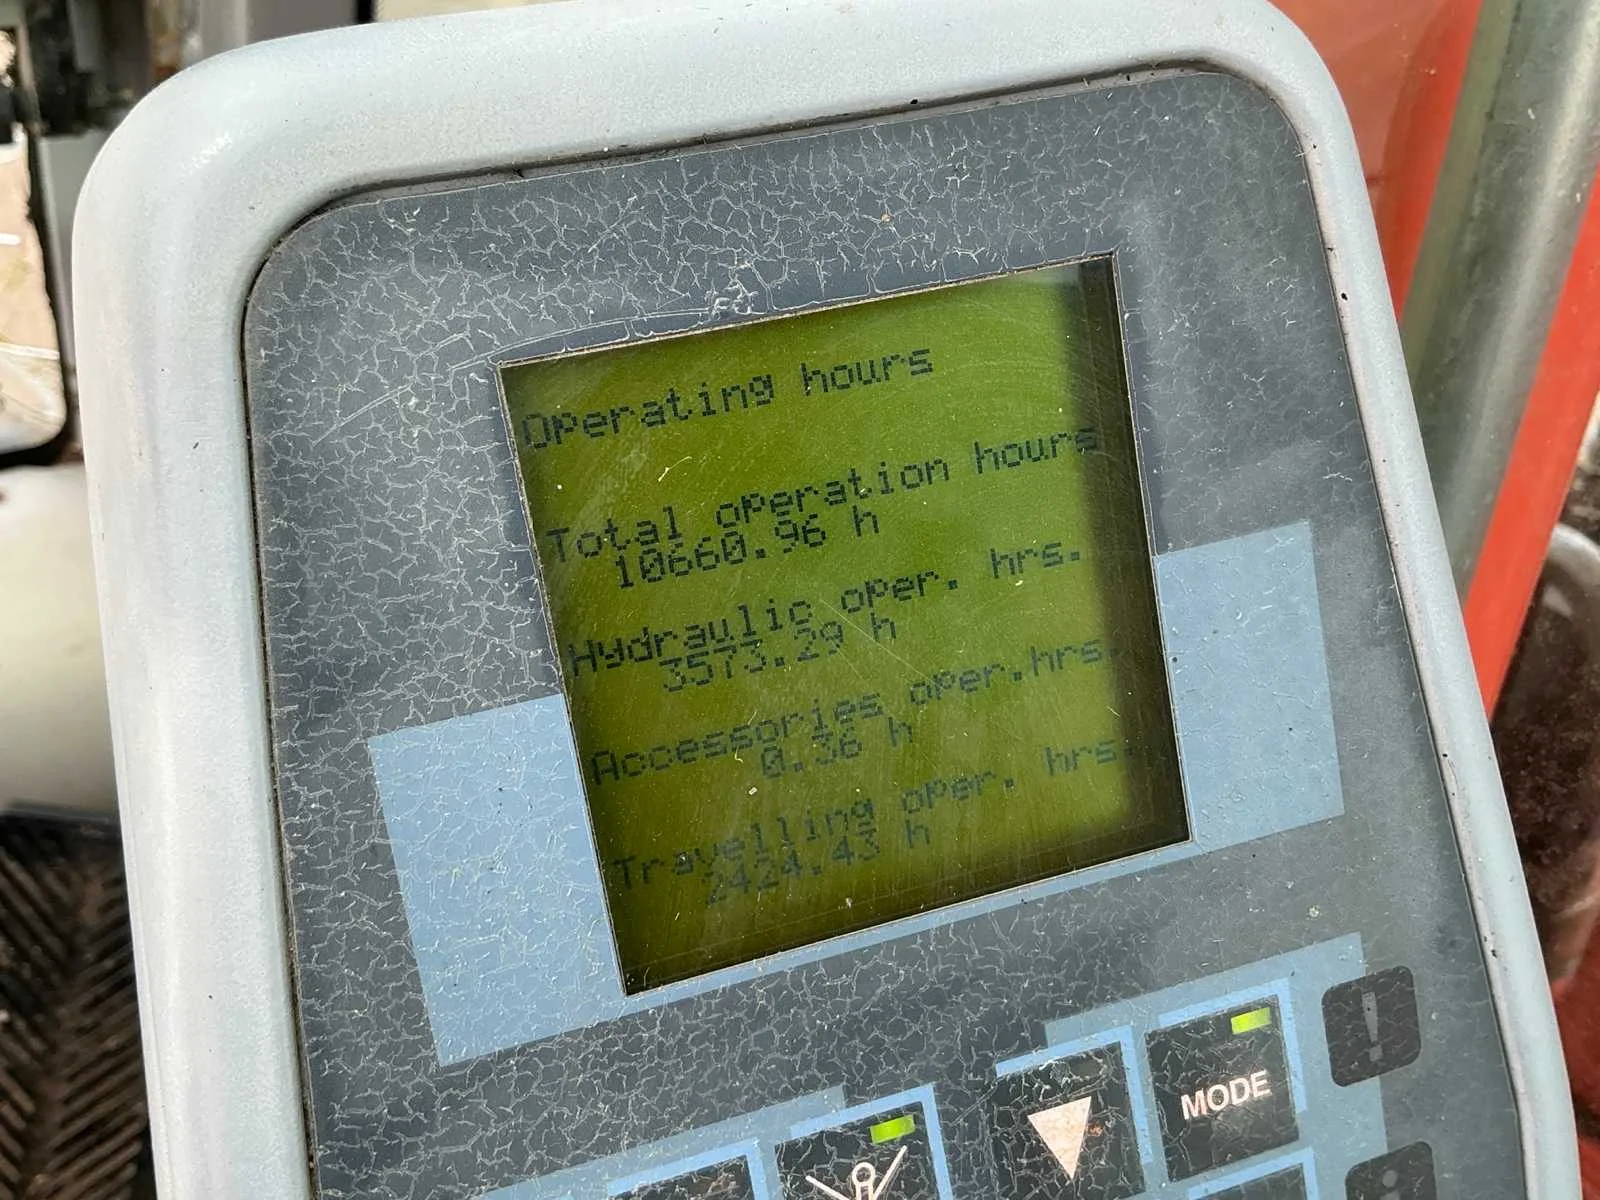 Operating hours
Total operation hours
10660.96 h
Hydraulic oper. hrs.
3573.29 h
Accessories oper.hrs.
0.36 h
Travelling oper. hrs.
2424.43 h
MODE
!